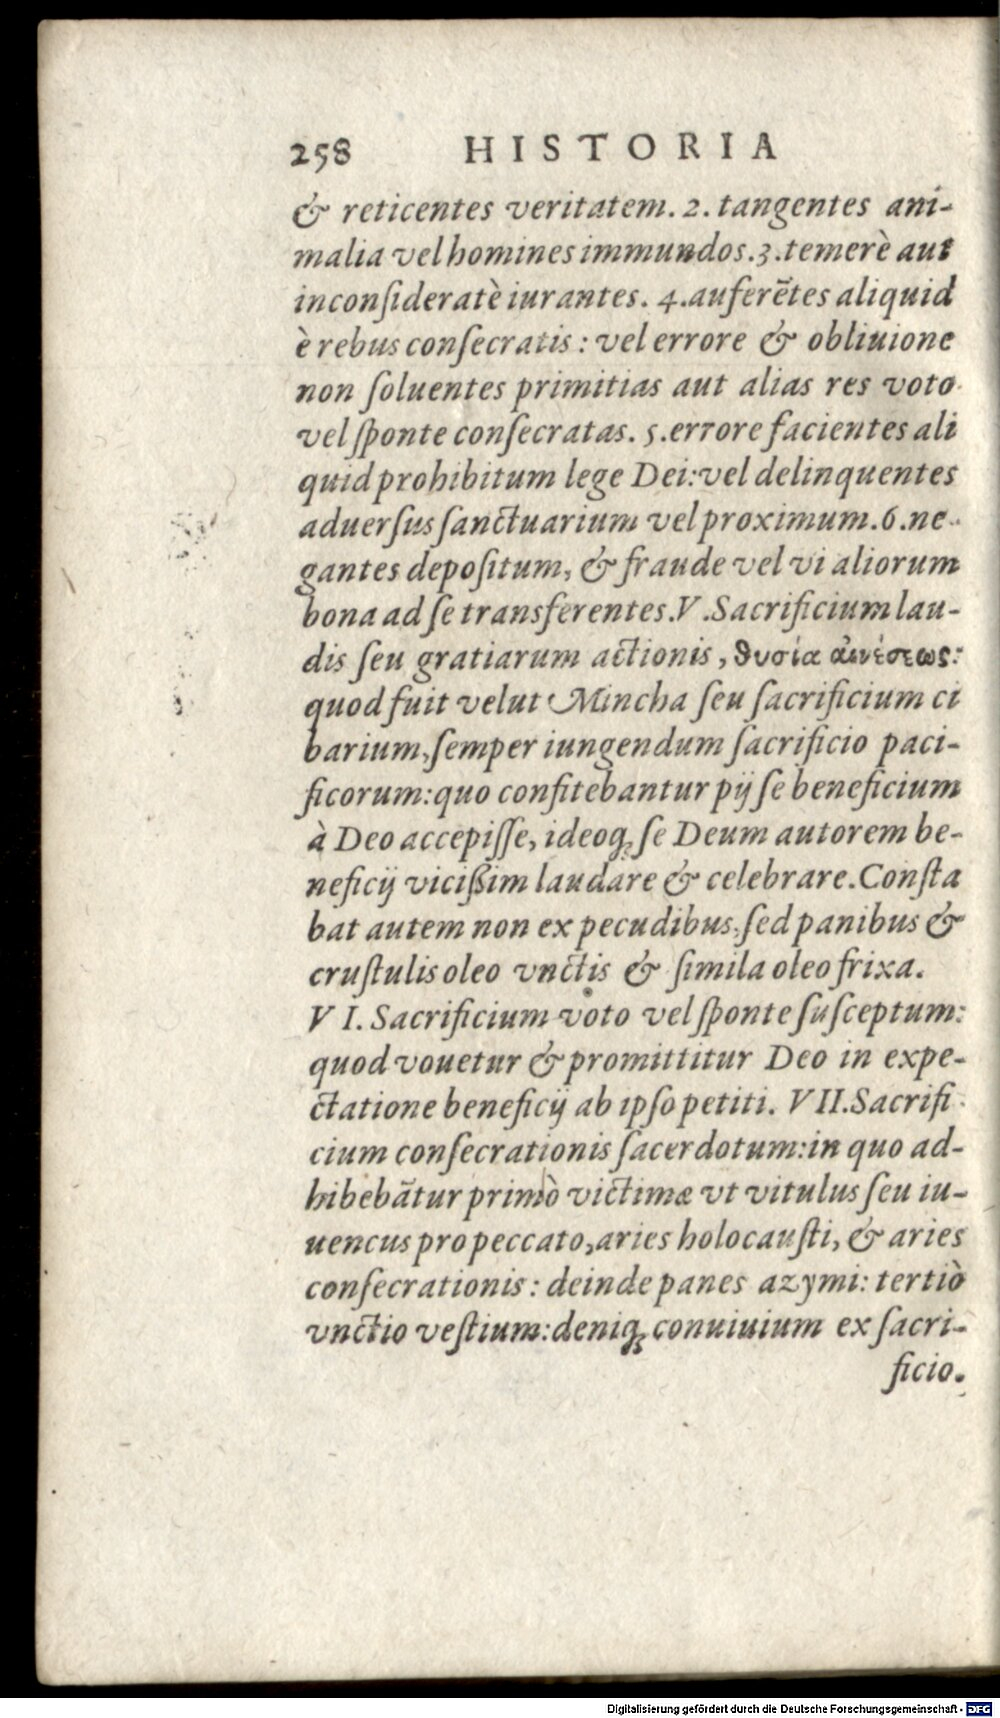 258 HISTORIA
& reticentes veritatem. 2. tangentes ani-
malia vel homines immundos. 3. temerè aut
inconſideratè iurantes. 4. auferẽtes aliquid
è rebus conſecratis: vel errore & obliuione
non ſoluentes primitias aut alias res voto
vel ſponte conſecratas. 5. errore facientes ali
quid prohibitum lege Dei: vel delinquentes
aduerſus ſanctuarium vel proximum. 6. ne-
gantes depoſitum, & fraude vel vi aliorum
bona ad ſe transferentes. V. Sacrificium lau-
dis ſeu gratiarum actionis, θυσία αἰνέσεως:
quod fuit velut Mincha ſeu ſacrificium ci
barium, ſemper iungendum ſacrificio paci-
ficorum: quo confitebantur pij ſe beneficium
à Deo accepiſſe, ideoq; ſe Deum autorem be-
neficij vicißim laudare & celebrare. Conſta
bat autem non ex pecudibus, ſed panibus &
cruſtulis oleo vnctis & ſimila oleo frixa.
VI. Sacrificium voto vel ſponte ſuſceptum:
quod vouetur & promittitur Deo in expe-
ctatione beneficij ab ipſo petiti. VII. Sacrifi
cium conſecrationis ſacerdotum: in quo ad-
hibebãtur primò victimæ vt vitulus ſeu iu-
uencus pro peccato, aries holocauſti, & aries
conſecrationis: deinde panes azymi: tertiò
vnctio veſtium: deniq; conuiuium ex ſacri-
ficio.
Digitalisierung gefördert durch die Deutsche Forschungsgemeinschaft - DFG